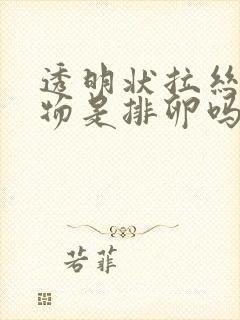 透明状拉丝
物是排卵吗
若菲